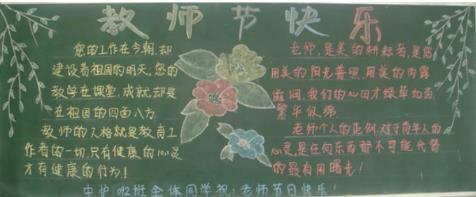 教师节快乐
您的工作在今朝,却
建设着祖国的明天,您的
教学在课堂,成就却是
在祖国的四面八方
教师的人格就是教育工
作者的一切,只有健康的心灵
才有健康的行为!
老师,是美的耕耘者,是您
用美的阳光普照,用美的雨露
滋润,我们的心田才绿草如茵,
繁华似锦.
老师个人的范例,对于青年人的
心灵,是任何东西都不可能代替
的最有用曙光!
中护 班全体同学祝:老师节日快乐!